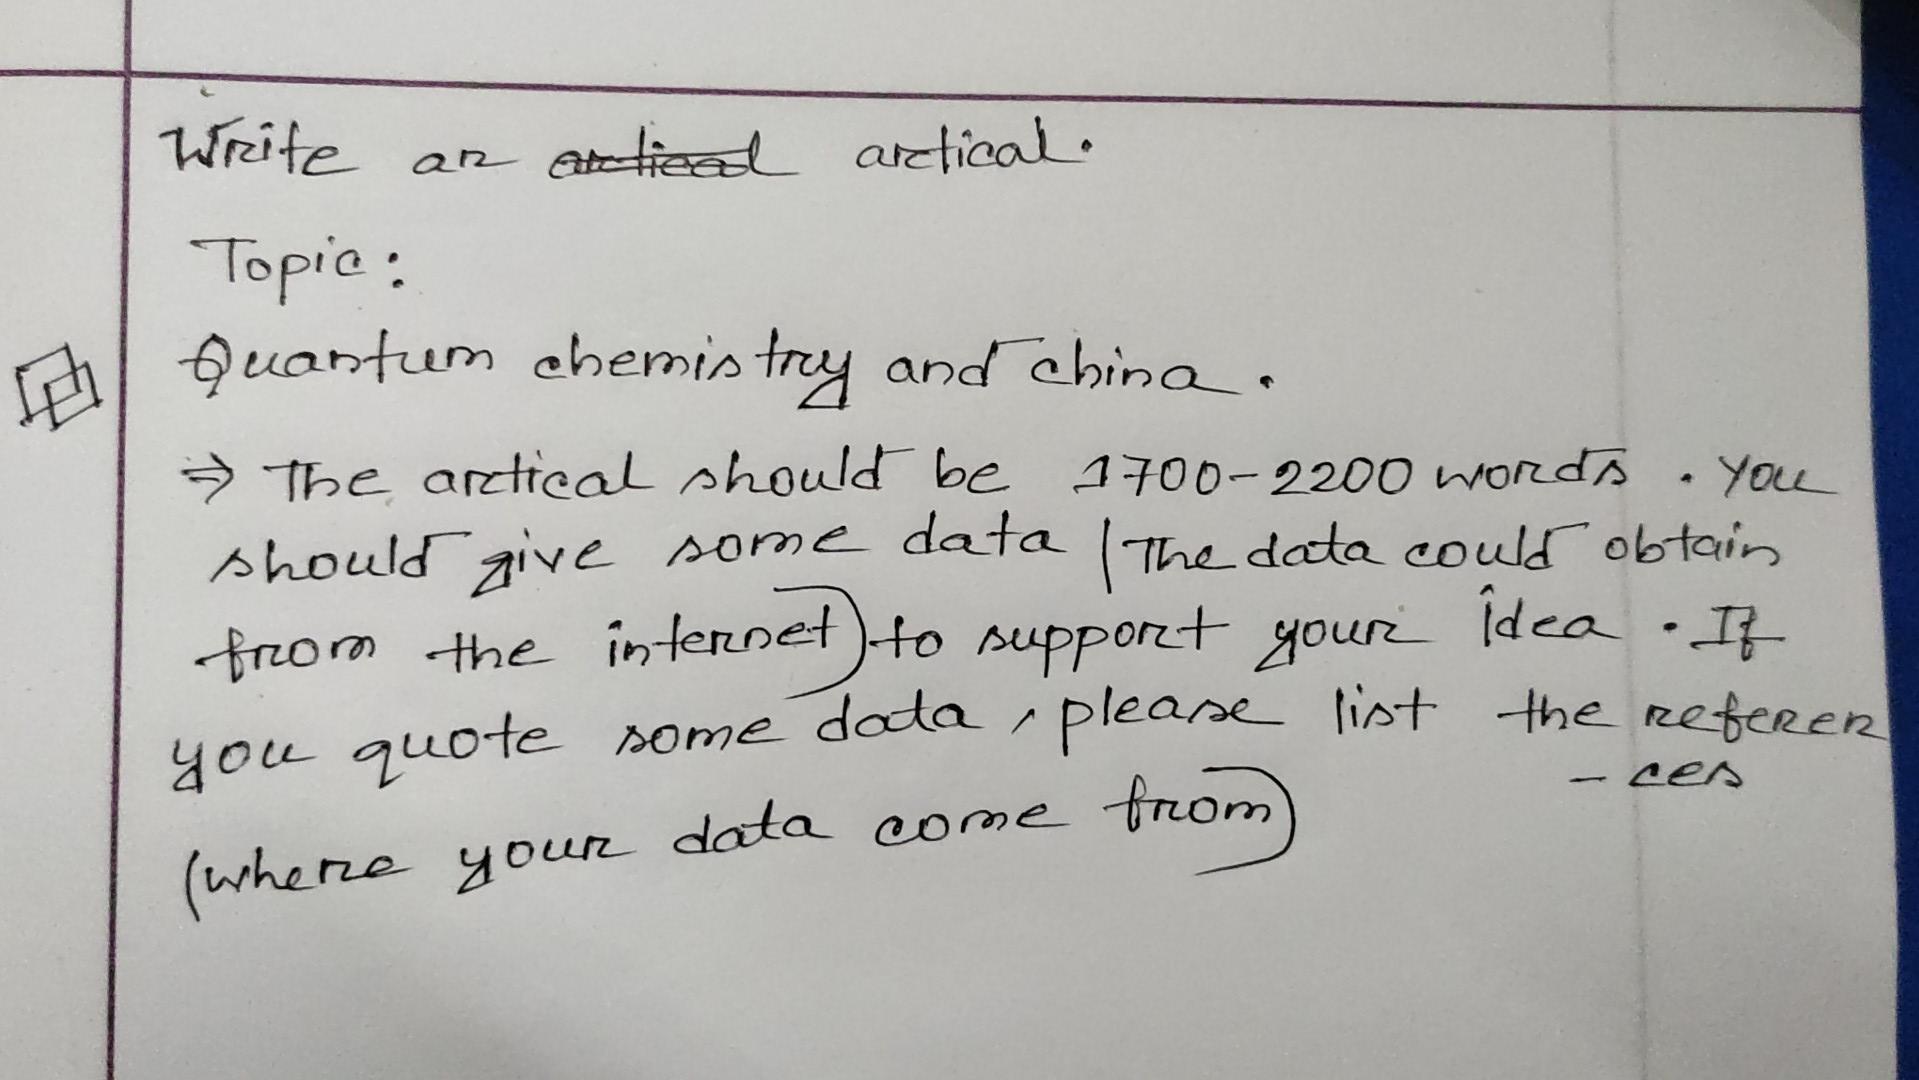 Write an artical.
Topic:
Quantum chemistry and china.
⇒ The artical should be 1700-2200 words. You
should give some data (The data could obtain
from the internet) to support your idea. If
you quote some data, please list the referen
- ces
(where your data come from)